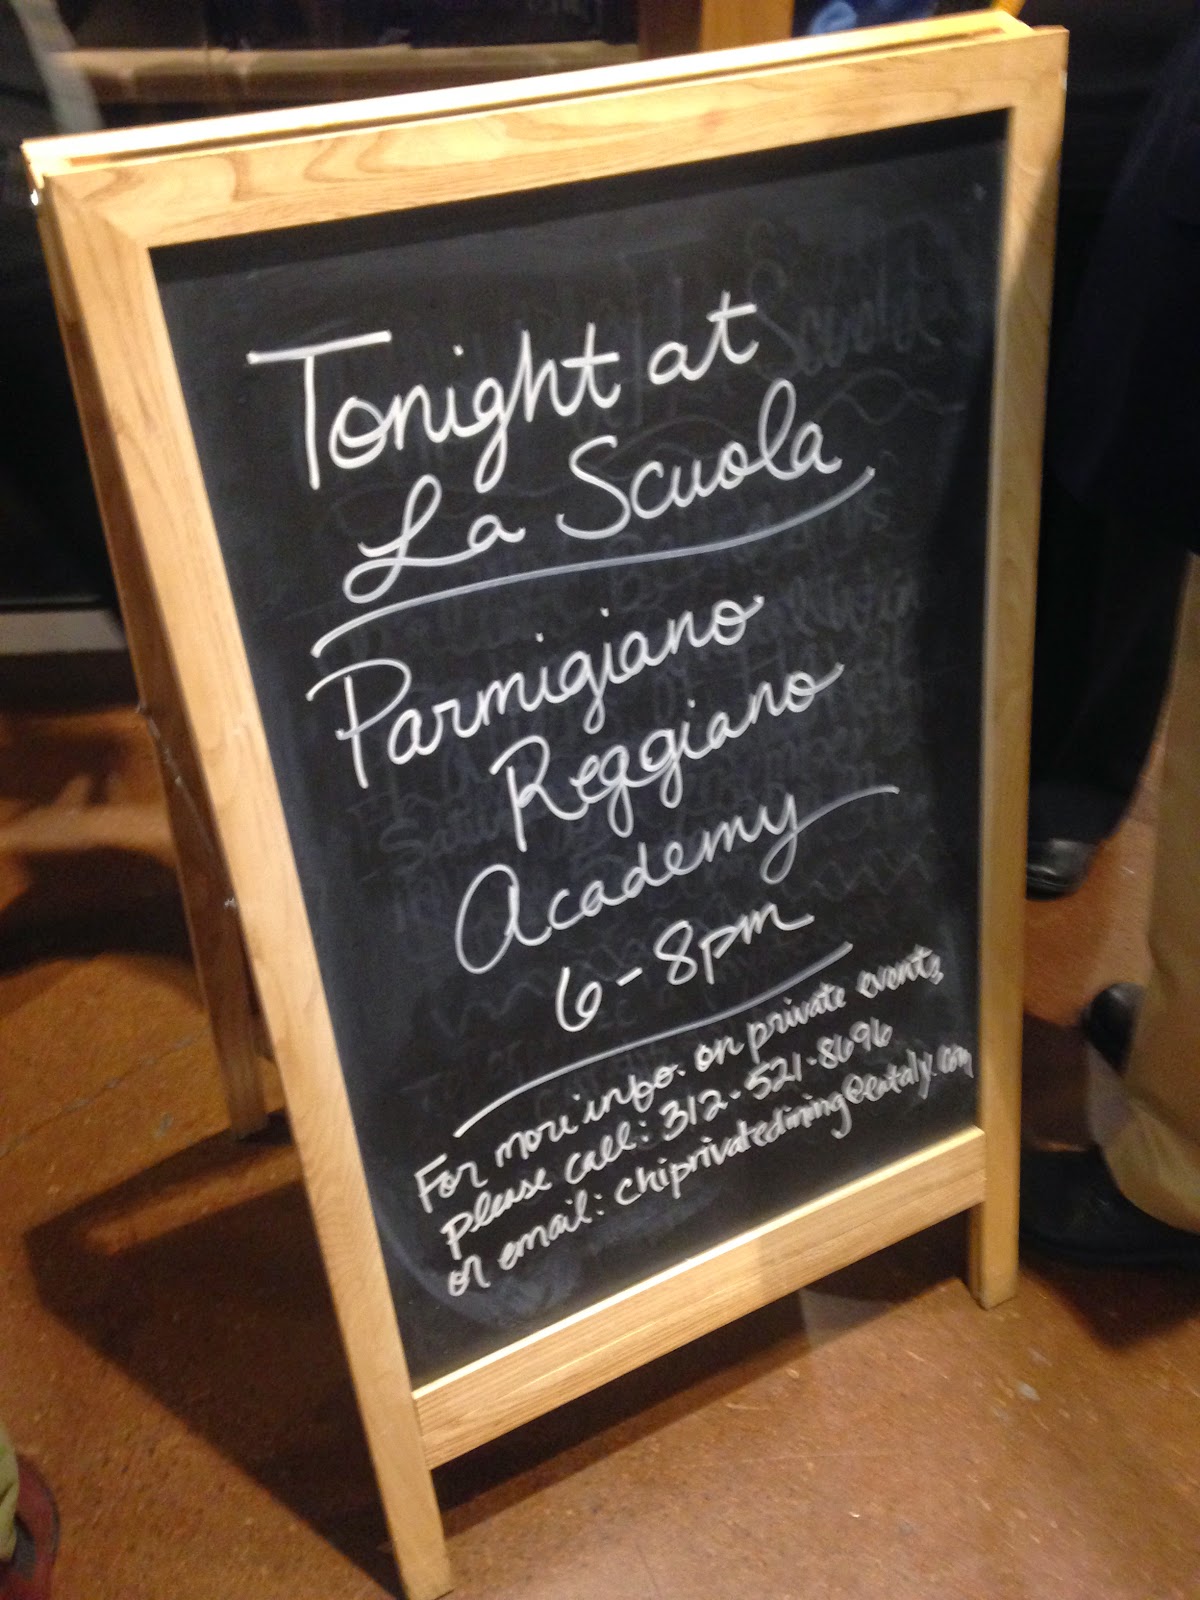 Tonight at
La Scuola
Parmigiano
Reggiano
Academy
6-8pm
For more info. on private events,
please call: 312-521-8696
or email: chiprivatedining@eataly.com